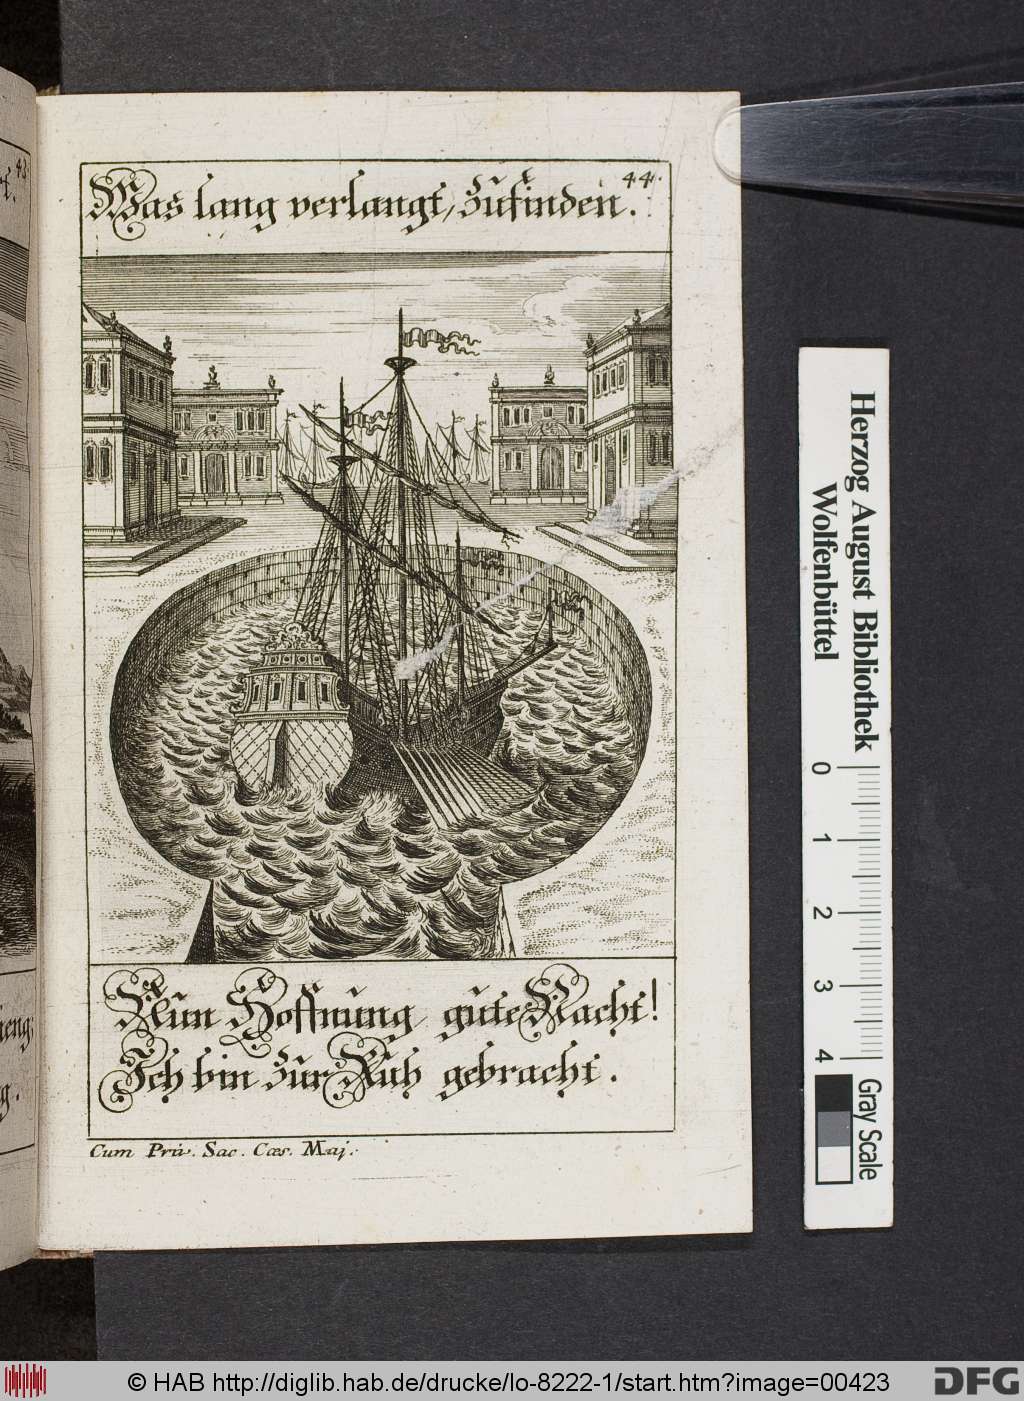 44.
Was lang verlangt, zu finden.
Nun Hoffnung gute Nacht!
Ich bin zur Ruh gebracht.
Cum Priv. Sac. Cæs. Maj.
43.
g.
Herzog August Bibliothek
Wolfenbüttel
0 1 2 3 4
Gray Scale
© HAB http://diglib.hab.de/drucke/lo-8222-1/start.htm?image=00423
DFG